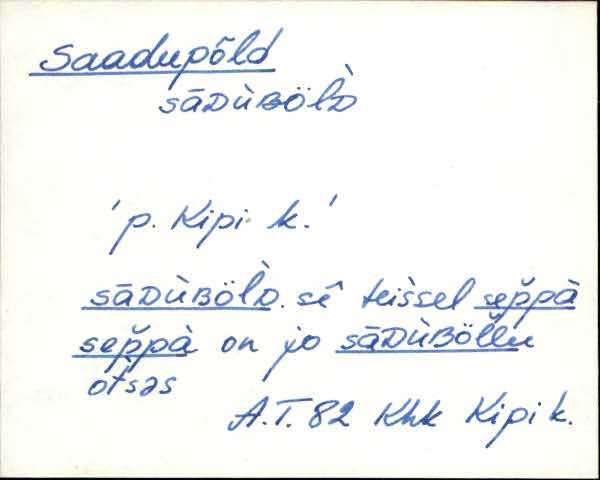 Saadupõld
sāDùBöl̀D
'p. Kipi k.'
sāDùBöl̀D. sê teìssel sep̆pà
sep̆pà on jo sāDùBöl̆lu
otsəs
A.T. 82 Khk Kipi k.